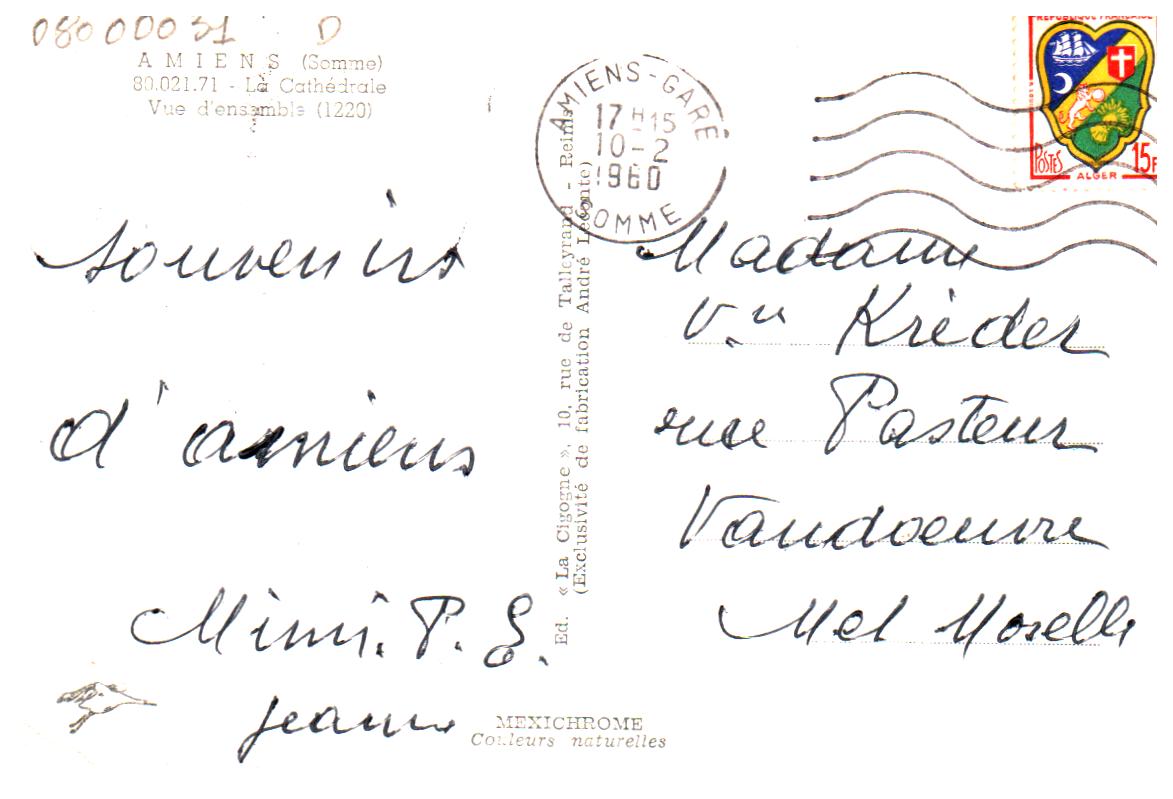 08000031 D
AMIENS (Somme)
80.021.71 - La Cathédrale
Vue d'ensemble (1220)
souvenirs
d'amiens
Mimi. P. G.
jeanne
Ed. « La Cigogne », 10, rue de Talleyrand - Reims
(Exclusivité de fabrication André Leconte)
MEXICHROME
Couleurs naturelles
AMIENS-GARE
17H15
10-2
1960
SOMME
REPUBLIQUE FRANCAISE
POSTES
ALGER
15F
Madame
Vve Krieder
rue Pasteur
Vandoeuvre
Met Moselle